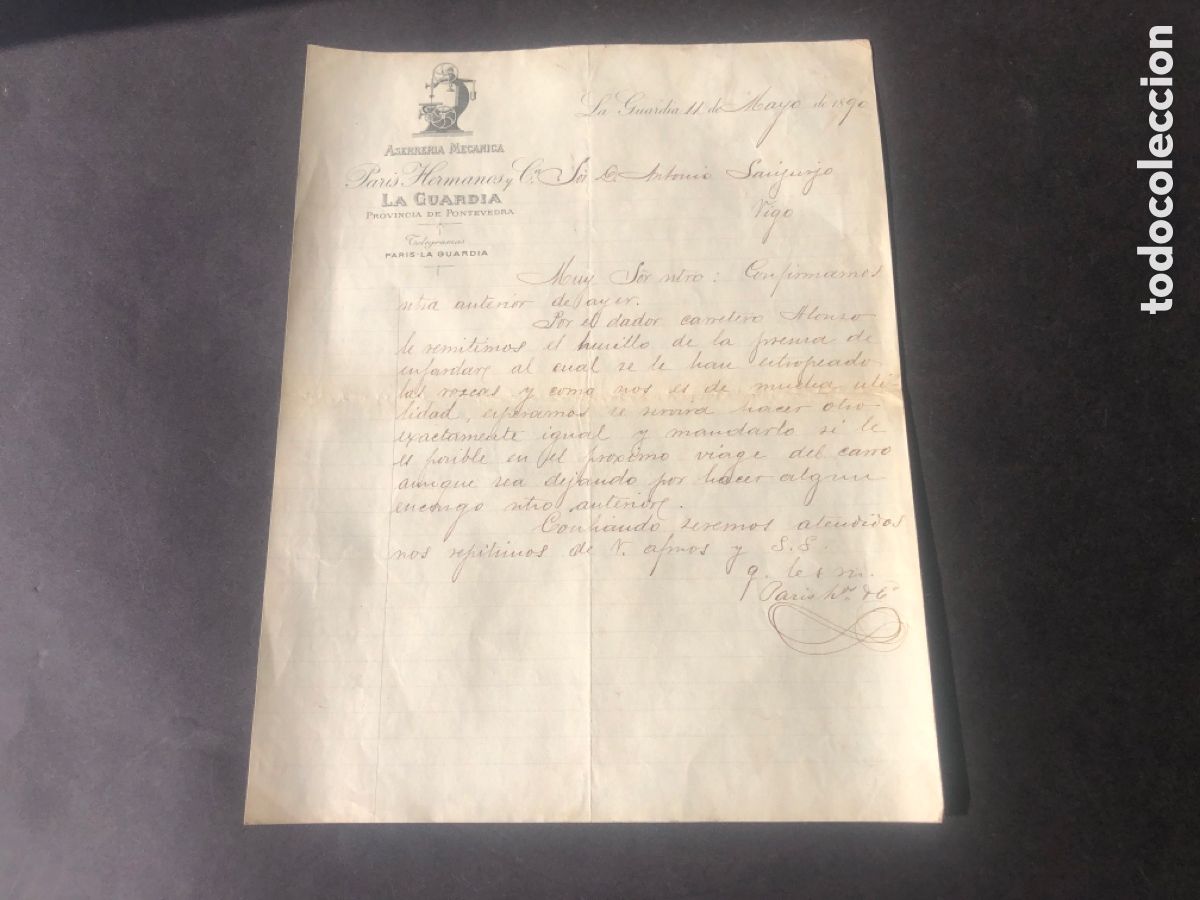 ASERRERIA MECANICA
Paris Hermanos y Cª
LA GUARDIA
PROVINCIA DE PONTEVEDRA
Telegramas
PARIS-LA GUARDIA
La Guardia 11 de Mayo de 1890
Sor D. Antonio Sanjurjo
Vigo
Muy Sor ntro: Confirmamos
ntra anterior de ayer.
Por el dador carretero Alonso
le remitimos el husillo de la prensa de
enfardar, al cual se le han estropeado
las roscas y como nos es de mucha uti-
lidad, esperamos se servirá hacer otro
exactamente igual y mandarlo si le
es posible en el proximo viage del carro
aunque sea dejando por hacer algun
encargo ntro anterior.
Confiando seremos atendidos
nos repitimos de V. afmos y S.S.
q. b. s. m.
Paris hos. & Cª
todocoleccion